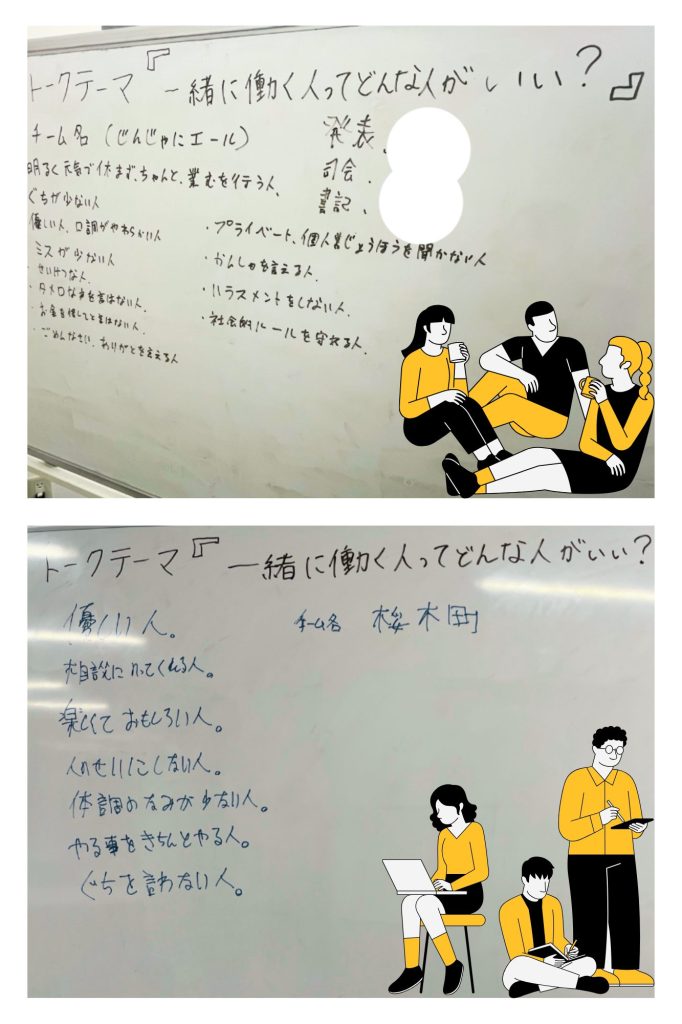 トークテーマ『一緒に働く人ってどんな人がいい?』
チーム名(じんじゃにエール)
発表、
司会、
書記、
明るく元気で休まず、ちゃんと、業むを行う人、
ぐちが少ない人
優しい人、口調がやわらかい人
ミスが少ない人
・せいけつな人、
・タメ口な事を言はない人、
・お金を借してと言はない人、
・ごめんなさい、ありがとを言える人
・プライベート、個人情じょうほうを聞かない人
・かんしゃを言える人、
・ハラスメントをしない人、
・社会的ルールを守れる人、
トークテーマ『一緒に働く人ってどんな人がいい?
チーム名 桜木町
優しい人。
相談にのってくれる人。
楽しくて おもしろい人。
人のせいにしない人。
体調のなみが少ない人。
やる事をきちんとやる人。
ぐちを言わない人。